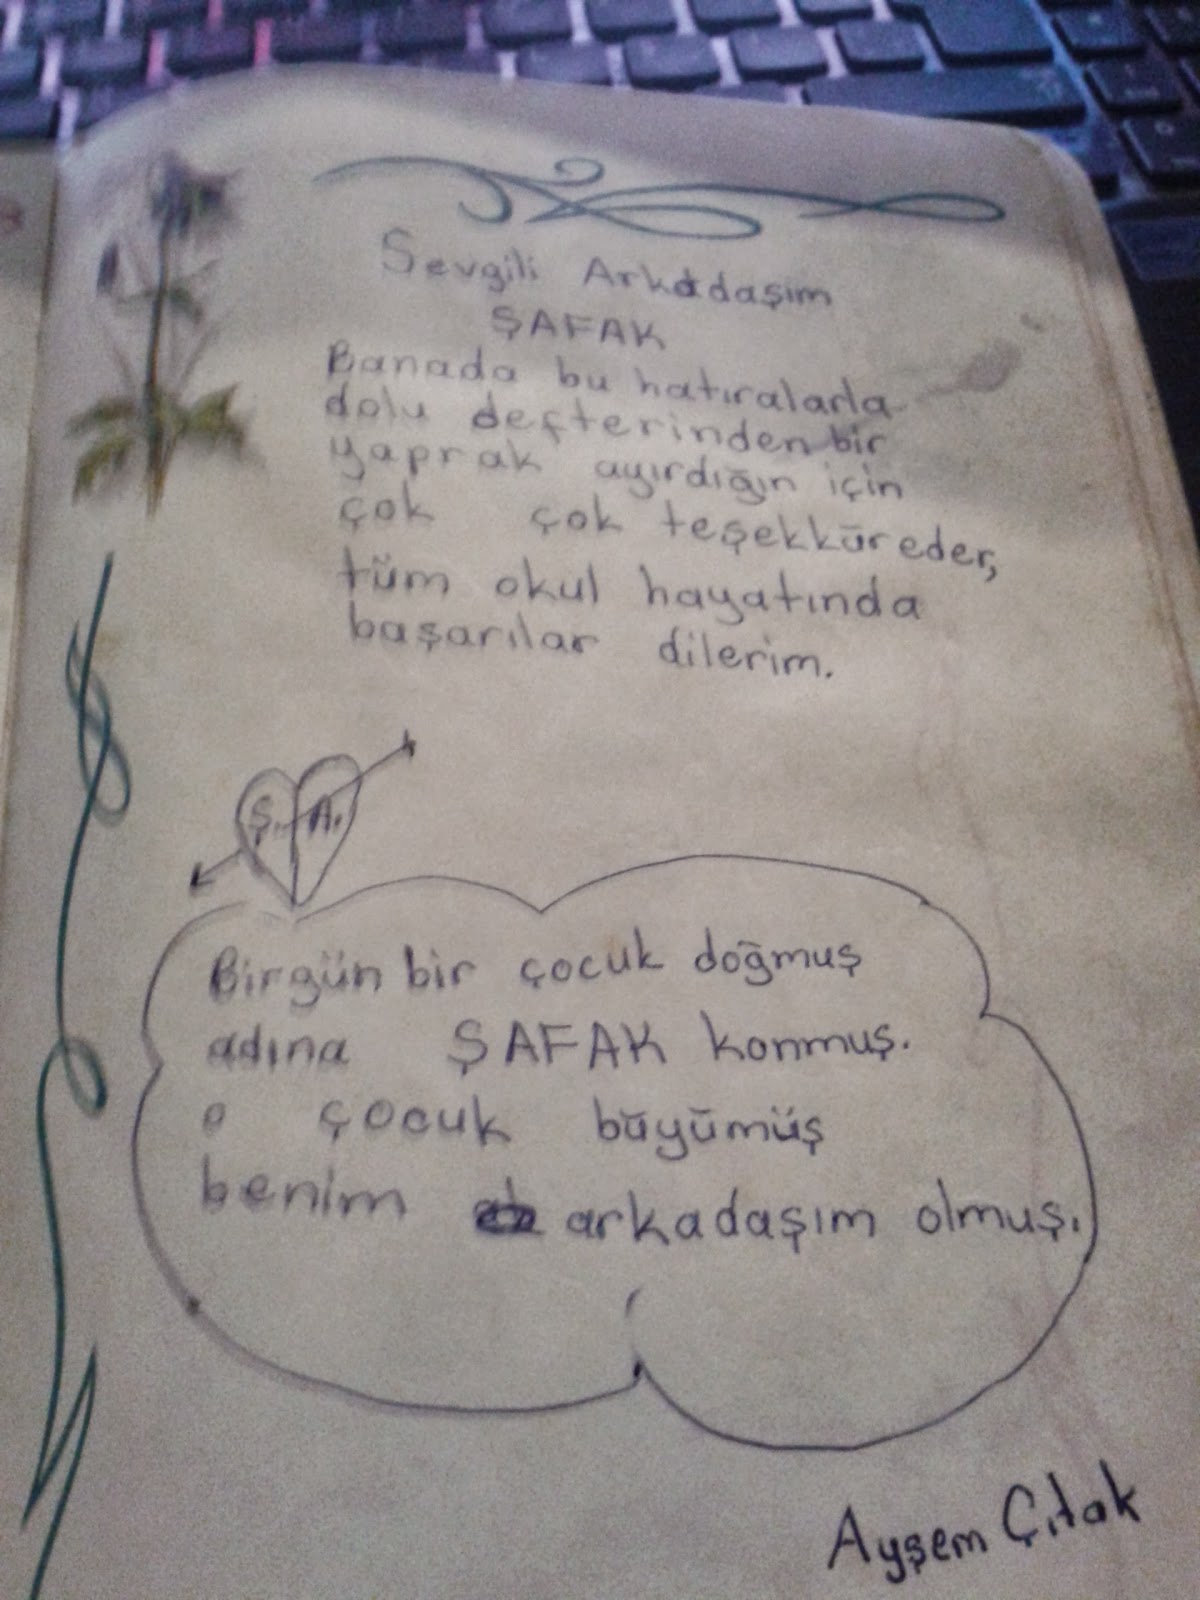 Sevgili Arkadaşım
ŞAFAK
Banada bu hatıralarla
dolu defterinden bir
yaprak ayırdığın için
çok çok teşekkür eder,
tüm okul hayatında
başarılar dilerim.
Ş. A.
Birgün bir çocuk doğmuş
adına ŞAFAK konmuş.
o çocuk büyümüş
benim arkadaşım olmuş.
Ayşem Çıtak